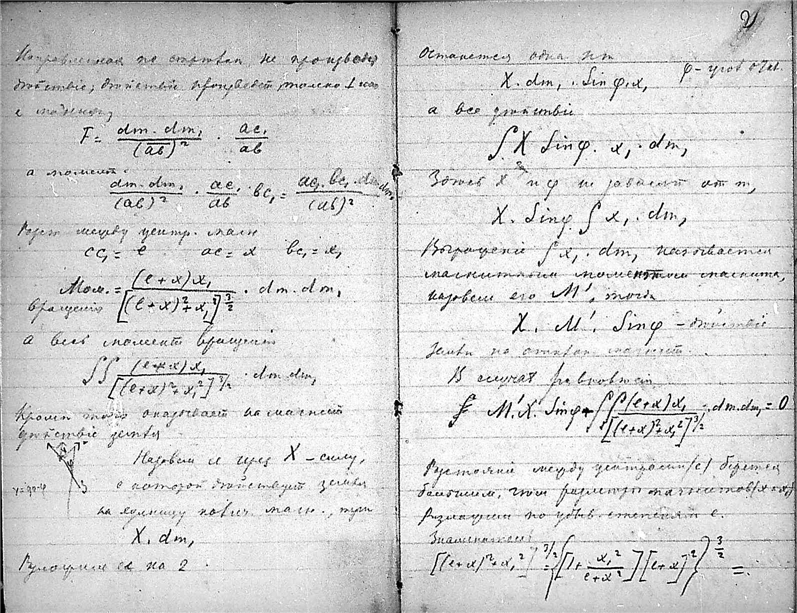 Направленная по стрелкам не производ
действие; действие производит только ⊥ная
F = dm·dm₁/(ab)² · ac₁/ab
а момент
dm·dm₁/(ab)² · ac₁/ab · bc₁ = ac₁·bc₁·dm·dm₁/(ab)²
между центр. магн
cc₁ = e ac = x bc₁ = x₁
Мом. = (e+x)x₁/[(e+x)²+x₁²]^(3/2) · dm·dm₁
вращения
а весь момент вращения
∫∫ (e+x)x₁/[(e+x)²+x₁²]^(3/2) · dm dm₁
Кроме того оказывает на магнит
действие земля
Назовем чрез X – силу,
с которой действует земля
на единицу магн.,
X. dm₁
на 2.
2
Останется одна
φ – угол откл.
X·dm₁·Sin φ·x₁
а все действие
∫ X Sin φ · x₁·dm₁
Здесь X и φ не зависят от m₁
X. Sin φ ∫ x₁·dm₁
Выражение ∫ x₁·dm₁ называется
магнитным моментом магнита,
назовем его M', тогда
X. M'. Sin φ – действие
Земли на магнит.
В случае равновесия
M'X·Sin φ + ∫∫ (e+x)x₁/[(e+x)²+x₁²]^(3/2) · dm·dm₁ = 0
Расстояние между центрами (e) берется
большим, чем размеры магнитов (x и x₁)
Разложим по убыв. степеням e.
Знаменатель:
[(e+x)²+x₁²]^(3/2) = {[1+x₁²/e+x²][e+x]²}^(3/2) =